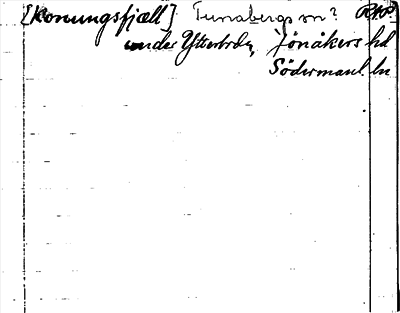 [Konungsfjæll] Tunabergs sn?
under Ytterbode, Jönåkers hd
Södermanl. ln